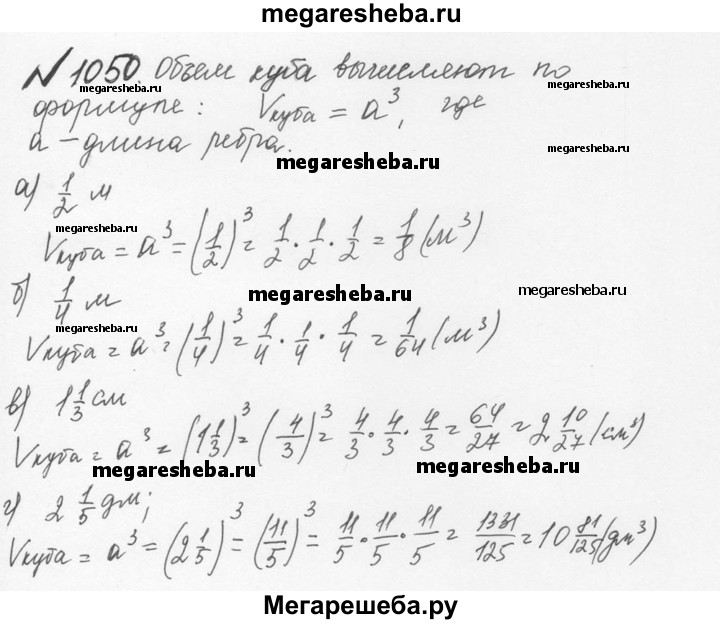 megaresheba.ru
№1050. Объем куба вычисляют по
формуле: Vкуба = a³, где
a – длина ребра.
megaresheba.ru
а) 1/2 м
megaresheba.ru
Vкуба = a³ = (1/2)³ = 1/2 · 1/2 · 1/2 = 1/8 (м³)
б) 1/4 м
megaresheba.ru
megaresheba.ru
megaresheba.ru
Vкуба = a³ = (1/4)³ = 1/4 · 1/4 · 1/4 = 1/64 (м³)
в) 1 1/3 см
Vкуба = a³ = (1 1/3)³ = (4/3)³ = 4/3 · 4/3 · 4/3 = 64/27 = 2 10/27 (см³)
megaresheba.ru
megaresheba.ru
г) 2 1/5 дм;
Vкуба = a³ = (2 1/5)³ = (11/5)³ = 11/5 · 11/5 · 11/5 = 1331/125 = 10 81/125 (дм³)
Мегарешеба.ру